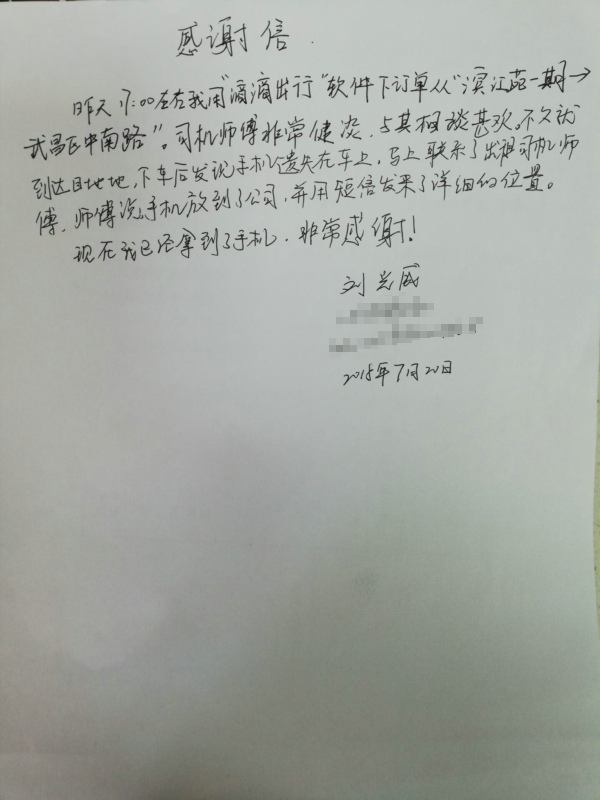 感谢信.
昨天17:00左右我用"滴滴出行"软件下订单从"滨江苑一期→
武昌区中南路"。司机师傅非常健谈,与其相谈甚欢。不久就
到达目地地,下车后发现手机遗失在车上,马上联系了出租司机师
傅,师傅说手机放到了公司,并用短信发来了详细的位置。
现在我已经拿到了手机,非常感谢!
刘
2018年7月20日